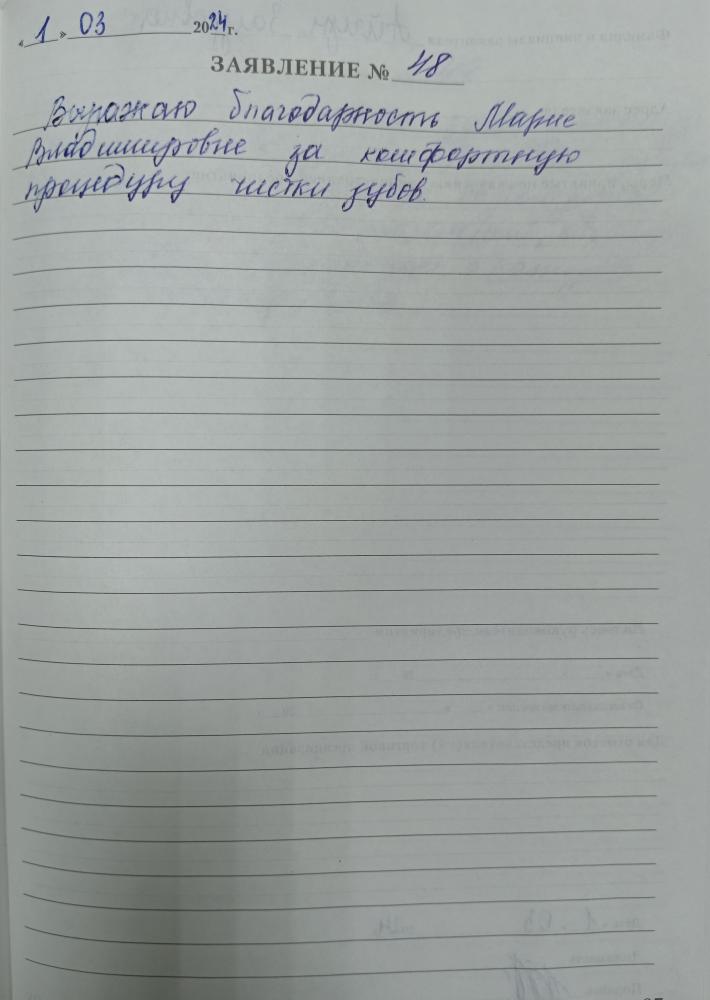 « 1 » 03 2024 г.
ЗАЯВЛЕНИЕ № 48
Выражаю благодарность Марие
Владимировне за комфортную
процедуру чистки зубов.